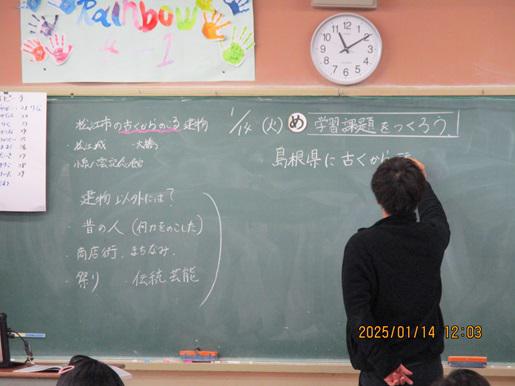 Rainbow
松江市の古くからのこる建物
・松江城
小泉八雲記念館
建物以外には?
・昔の人(何かをのこした)
・商店街、まちなみ
・祭り ・伝統芸能
1/14(火) め 学習課題をつくろう
島根県に古くから
2025/01/14 12:03